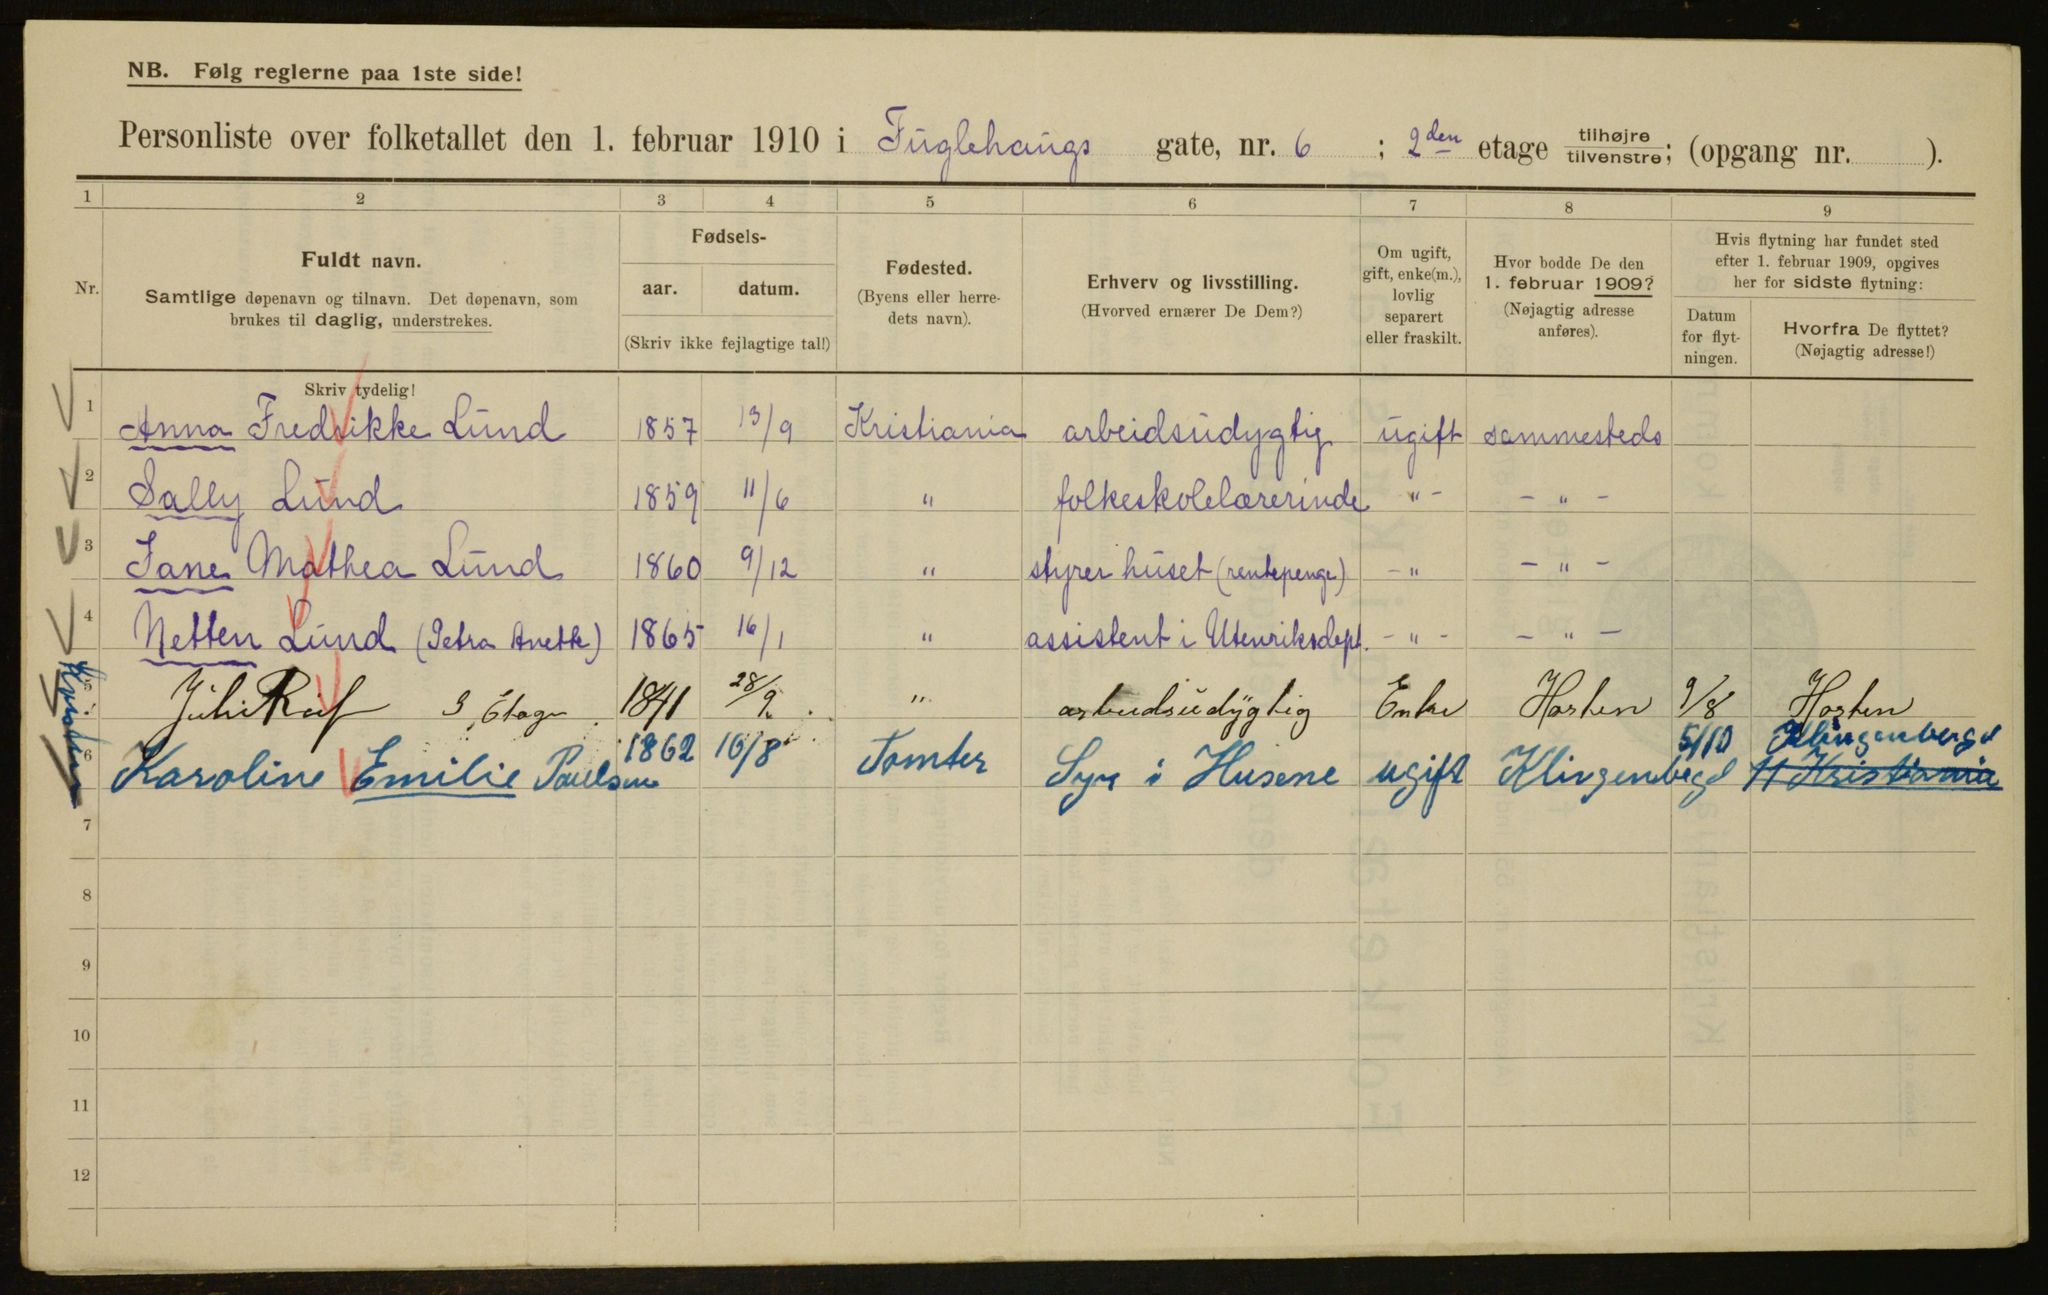 NB. Følg reglerne paa 1ste side!
Personliste over folketallet den 1. februar 1910 i Fuglehaugs gate, nr. 6 ; 2den etage tilhøjre/tilvenstre; (opgang nr. ).
1 2 3 4 5 6 7 8 9
Nr.
Fuldt navn.
Samtlige døpenavn og tilnavn. Det døpenavn, som
brukes til daglig, understrekes.
Skriv tydelig!
Fødsels-
aar. datum.
(Skriv ikke fejlagtige tal!)
Fødested.
(Byens eller herre-
dets navn).
Erhverv og livsstilling.
(Hvorved ernærer De Dem?)
Om ugift,
gift, enke(m.),
lovlig
separert
eller fraskilt.
Hvor bodde De den
1. februar 1909?
(Nøjagtig adresse
anføres).
Hvis flytning har fundet sted
efter 1. februar 1909, opgives
her for sidste flytning:
Datum
for flyt-
ningen.
Hvorfra De flyttet?
(Nøjagtig adresse!)
1 Anna Fredrikke Lund 1857 13/9 Kristiania arbeidsudygtig ugift sammesteds
2 Sally Lund 1859 11/6 " folkeskolelærerinde " - - " -
3 Jane Mathea Lund 1860 9/12 " styrer huset (rentepenge) - " - " -
4 Netten Lund (Petra Anette) 1865 16/1 " assistent i Utenriksdept. - " - - " -
5 3 Etage 1841 28/9 " arbeidsudygtig Enke Horten 9/8 Horten
6 Karoline Emilie Paulsen 1862 10/8 Tomter Syr i Husene ugift Klingenbegd 5/10 Klingenbergd
11 Kristiania
7
8
9
10
11
12